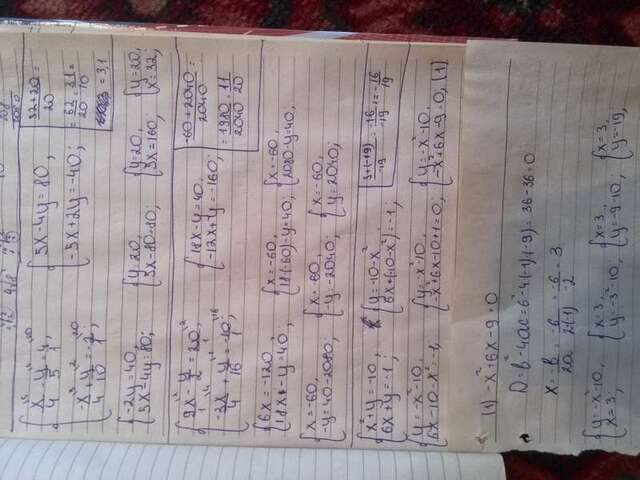 { x/4 - y/5 = 4,
{ -x/4 + y/10 = -2;
{ 5x-4y=80,
{ -5x+2y=-40;
(32+20)/20 =
= 62/20 = 31/10 = 3,1
{ -2y=40
{ 5x-4y=80;
{ y=20
{ 5x-80=80;
{ y=20,
{ 5x=160;
{ y=20,
{ x=32;
{ 9x - y/2 = 20,
{ -3x/4 + y/16 = -10;
{ 18x-y=40,
{ -12x+y=-160;
(-60+2040)/2040 =
= 1980/2040 · 11/20
{ 6x=-120
{ 18x-y=40;
{ x=-60,
{ 18(-60)-y=40;
{ x=-60,
{ 2080-y=40;
{ x=-60,
{ -y=40-2080;
{ x=-60,
{ -y=-2040;
{ x=-60,
{ y=2040;
{ x²+y=-10,
{ 6x+y=-1;
{ y=-10-x²
{ 6x+(-10-x²)=-1;
(3+(-19))/-19 = -16/-19 = -16/19
{ y=-x²-10,
{ 6x-10-x²=-1,
{ y=-x²-10,
{ -x²+6x-10+1=0;
{ y=-x²-10,
{ -x²+6x-9=0; (1)
(1) -x²+6x-9=0
D=b²-4ac=6²-4(-1)(-9)=36-36=0
x = -b/2a = -6/2(-1) = -6/-2 = 3
{ y=-x²-10,
{ x=3;
{ x=3,
{ y=-3²-10;
{ x=3,
{ y=-9-10;
{ x=3,
{ y=-19;